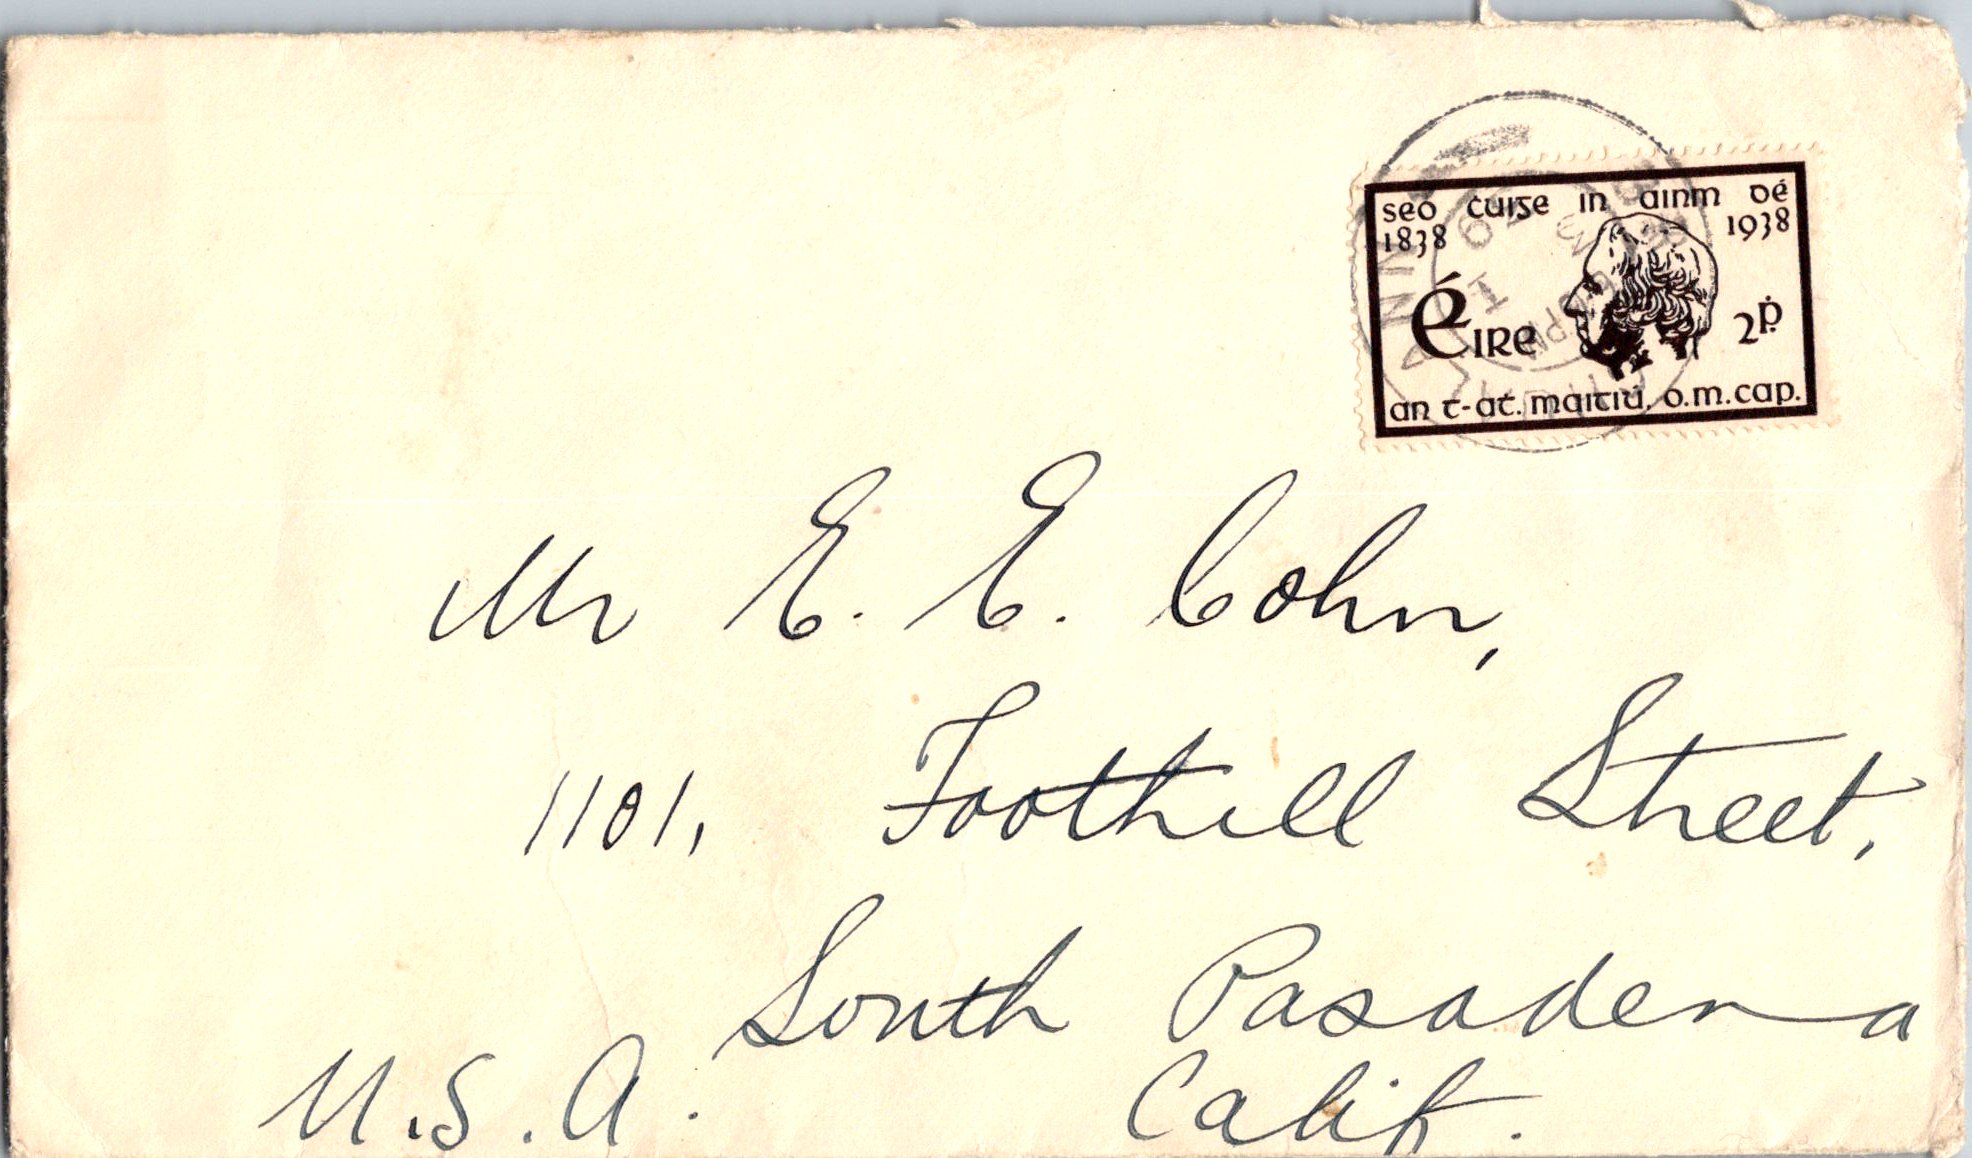 seo ċuiġe in ainm dé
1838 1938
Éire 2ṗ.
an t-aṫ. maitiú, o.m.cap.
Mr E. E. Cohn,
1101, Foothill Street,
South Pasadena
U.S.A. Calif.